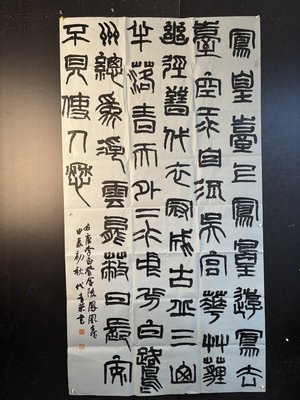 鳳皇臺上鳳皇遊鳳去
臺空江自流吳宮華艸薶
幽徑晉代衣冠成古丘三山
半落青天外二水中分白鷺
州總為浮雲能蔽日長安
不見使人愁
右唐李白登金陵鳳凰臺
甲辰初秋